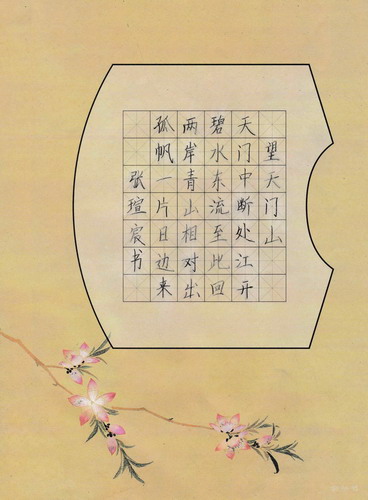 望天门山
天门中断处江开
碧水东流至此回
两岸青山相对出
孤帆一片日边来
张瑄宸书